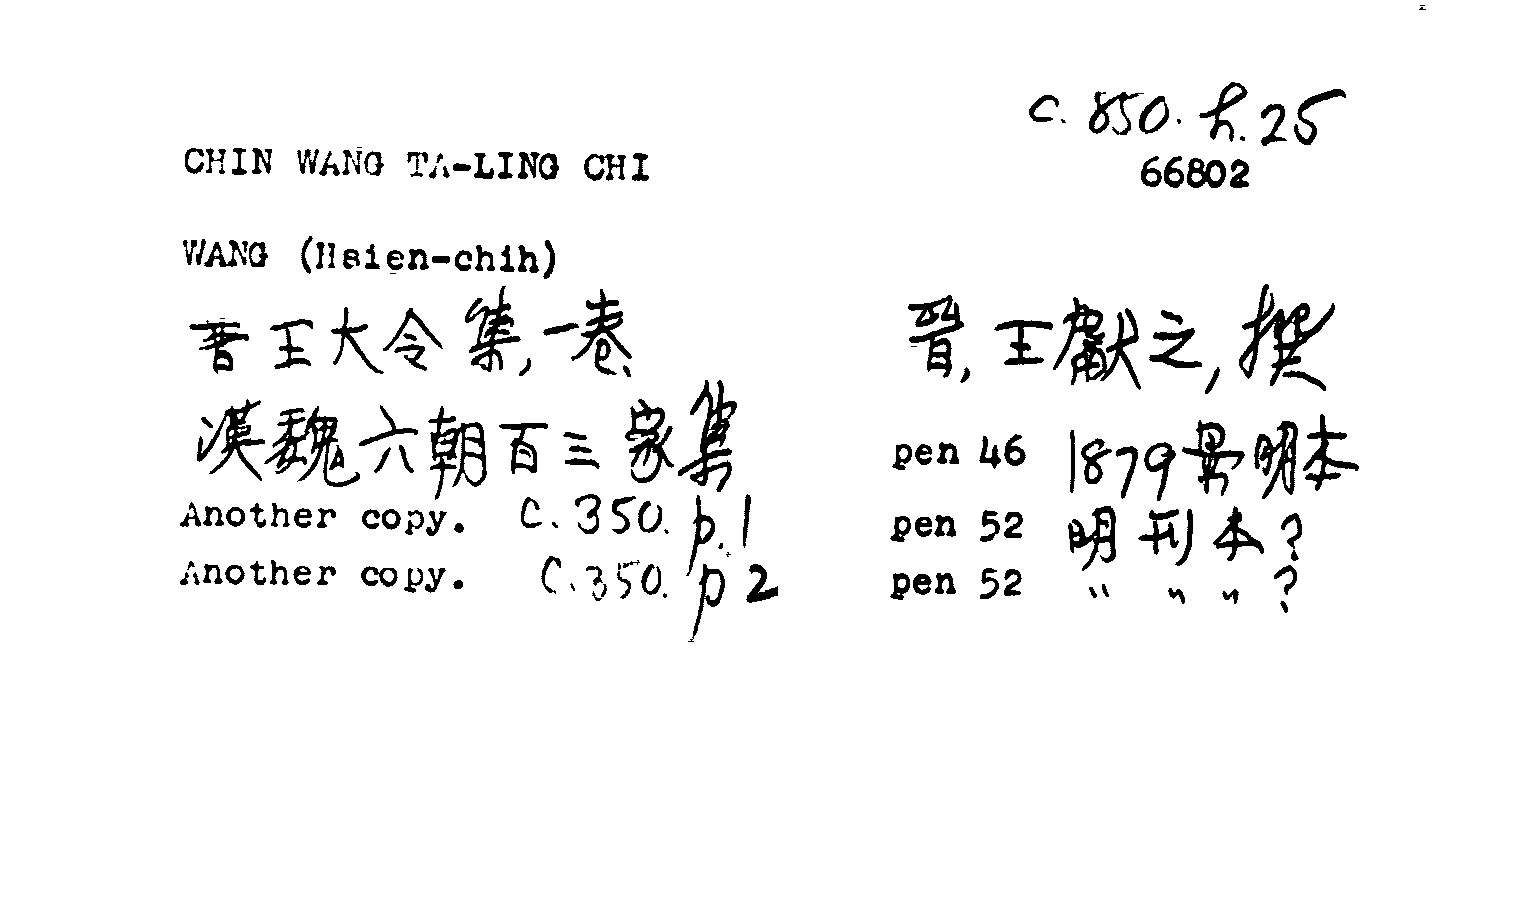 C. 850. h. 25
CHIN WANG TA-LING CHI
66802
WANG (Hsien-chih)
晋王大令集,一卷 晉,王獻之,撰
漢魏六朝百三家集 pen 46 1879景明本
Another copy. C. 350. p. 1 pen 52 明刊本?
Another copy. C. 350. p 2 pen 52 " " " ?